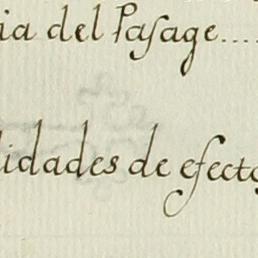 ia del Pasage....
lidades de efecto